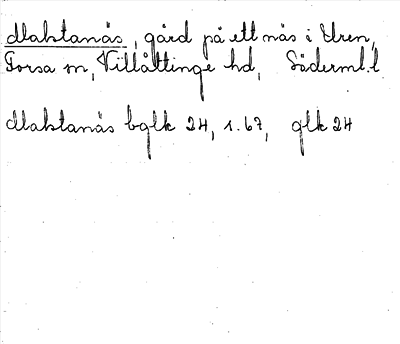 Maktanäs, gård på ett näs i Uren,
Forsa sn, Villåttinge hd, Söderml. l.
Maktanäs bglk 24, 1.67, glk 24